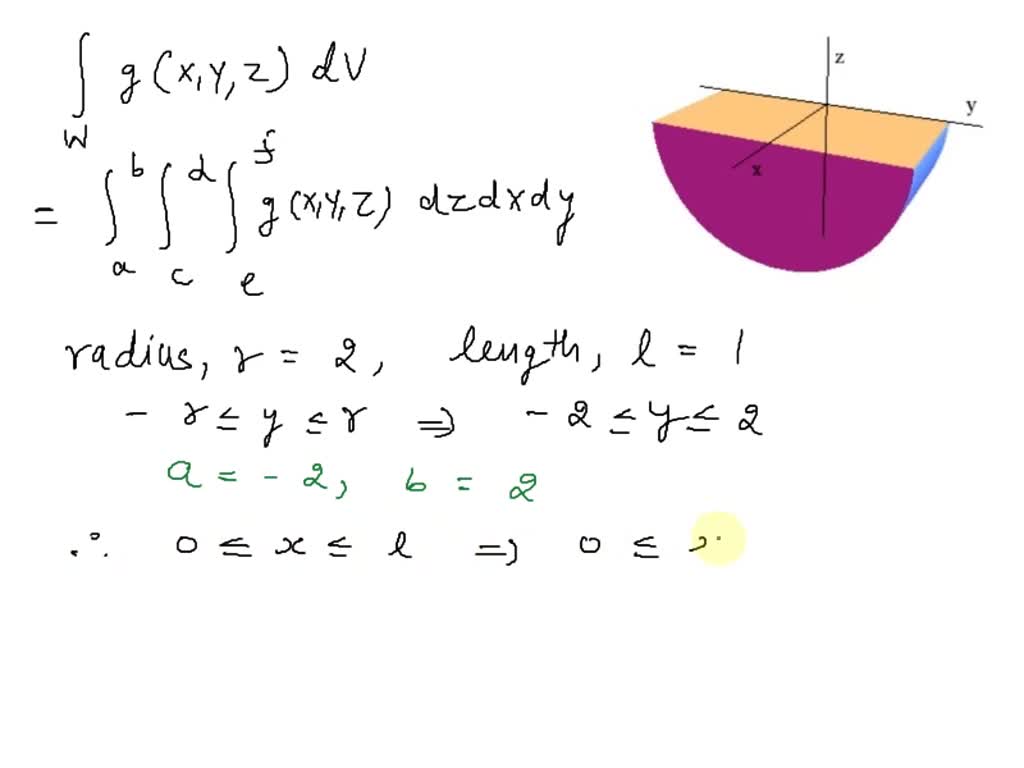 ∫_W g(x,y,z) dV
= ∫_a^b ∫_c^d ∫_e^f g(x,y,z) dzdxdy
z
y
x
radius, r = 2, length, l = 1
- r ≤ y ≤ r ⇒ - 2 ≤ y ≤ 2
a = - 2, b = 2
∴ 0 ≤ x ≤ l ⇒ 0 ≤